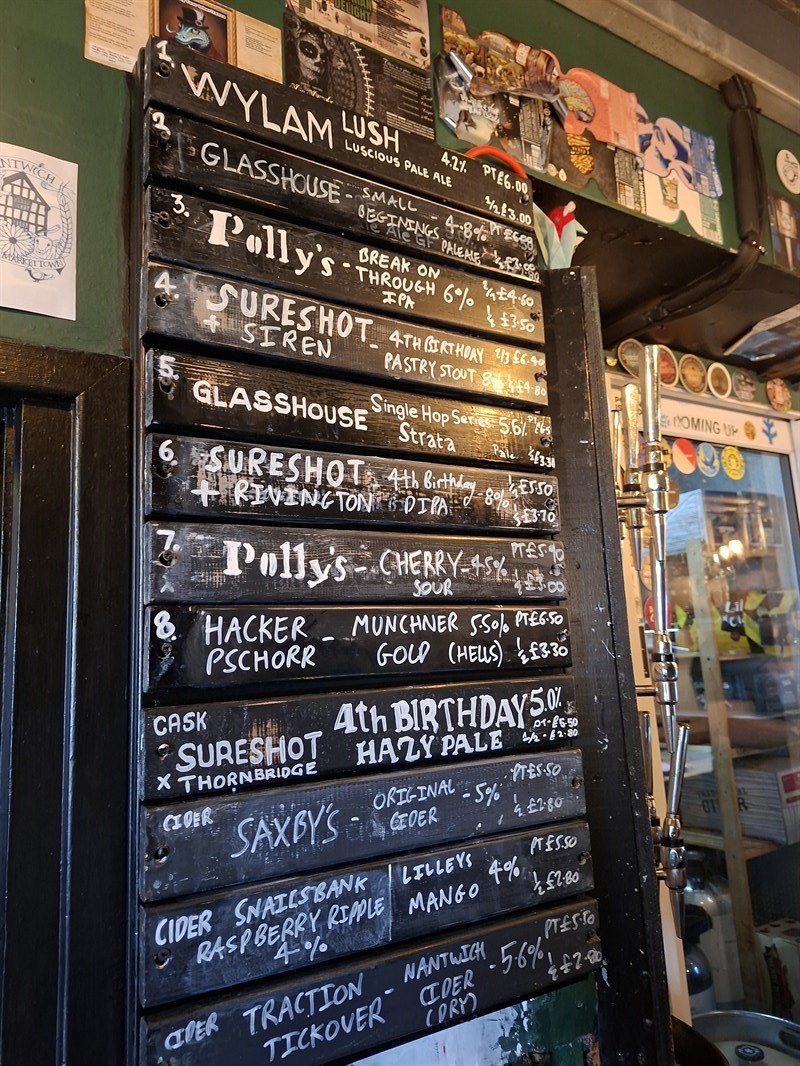 1. WYLAM LUSH 4.2% PT £6.00
LUSCIOUS PALE ALE ½ £3.00
2. GLASSHOUSE - SMALL
BEGININGS - 4.8%
PALE ALE
3. Polly's - BREAK ON
THROUGH 6% £4.60
IPA ½ £3.50
4. SURESHOT
+ SIREN - 4TH BIRTHDAY 2/3 £6.40
PASTRY STOUT £4.80
5. GLASSHOUSE Single Hop Series 5.6%
Strata Pale ½ £3.30
6 SURESHOT 4th Birthday 8% £5.50
+ RIVINGTON DIPA £3.70
7. Polly's - CHERRY - 4.5% PT £5.90
SOUR £3.00
8. HACKER - MUNCHNER 5.50% PT £6.50
PSCHORR GOLD (HELLS) ½ £3.30
CASK 4th BIRTHDAY 5.0%
SURESHOT HAZY PALE PT - £5.50
X THORNBRIDGE 1/2 - £2.80
CIDER SAXBY'S - ORIGINAL - 5% PT £5.50
CIDER ½ £2.80
CIDER SNAILSBANK LILLEYS 4% PT £5.50
RASPBERRY RIPPLE MANGO ½ £2.80
4%
CIDER TRACTION - NANTWICH - 5.6% PT £5.50
TICKOVER CIDER ½ £2.80
(DRY)
COMING UP